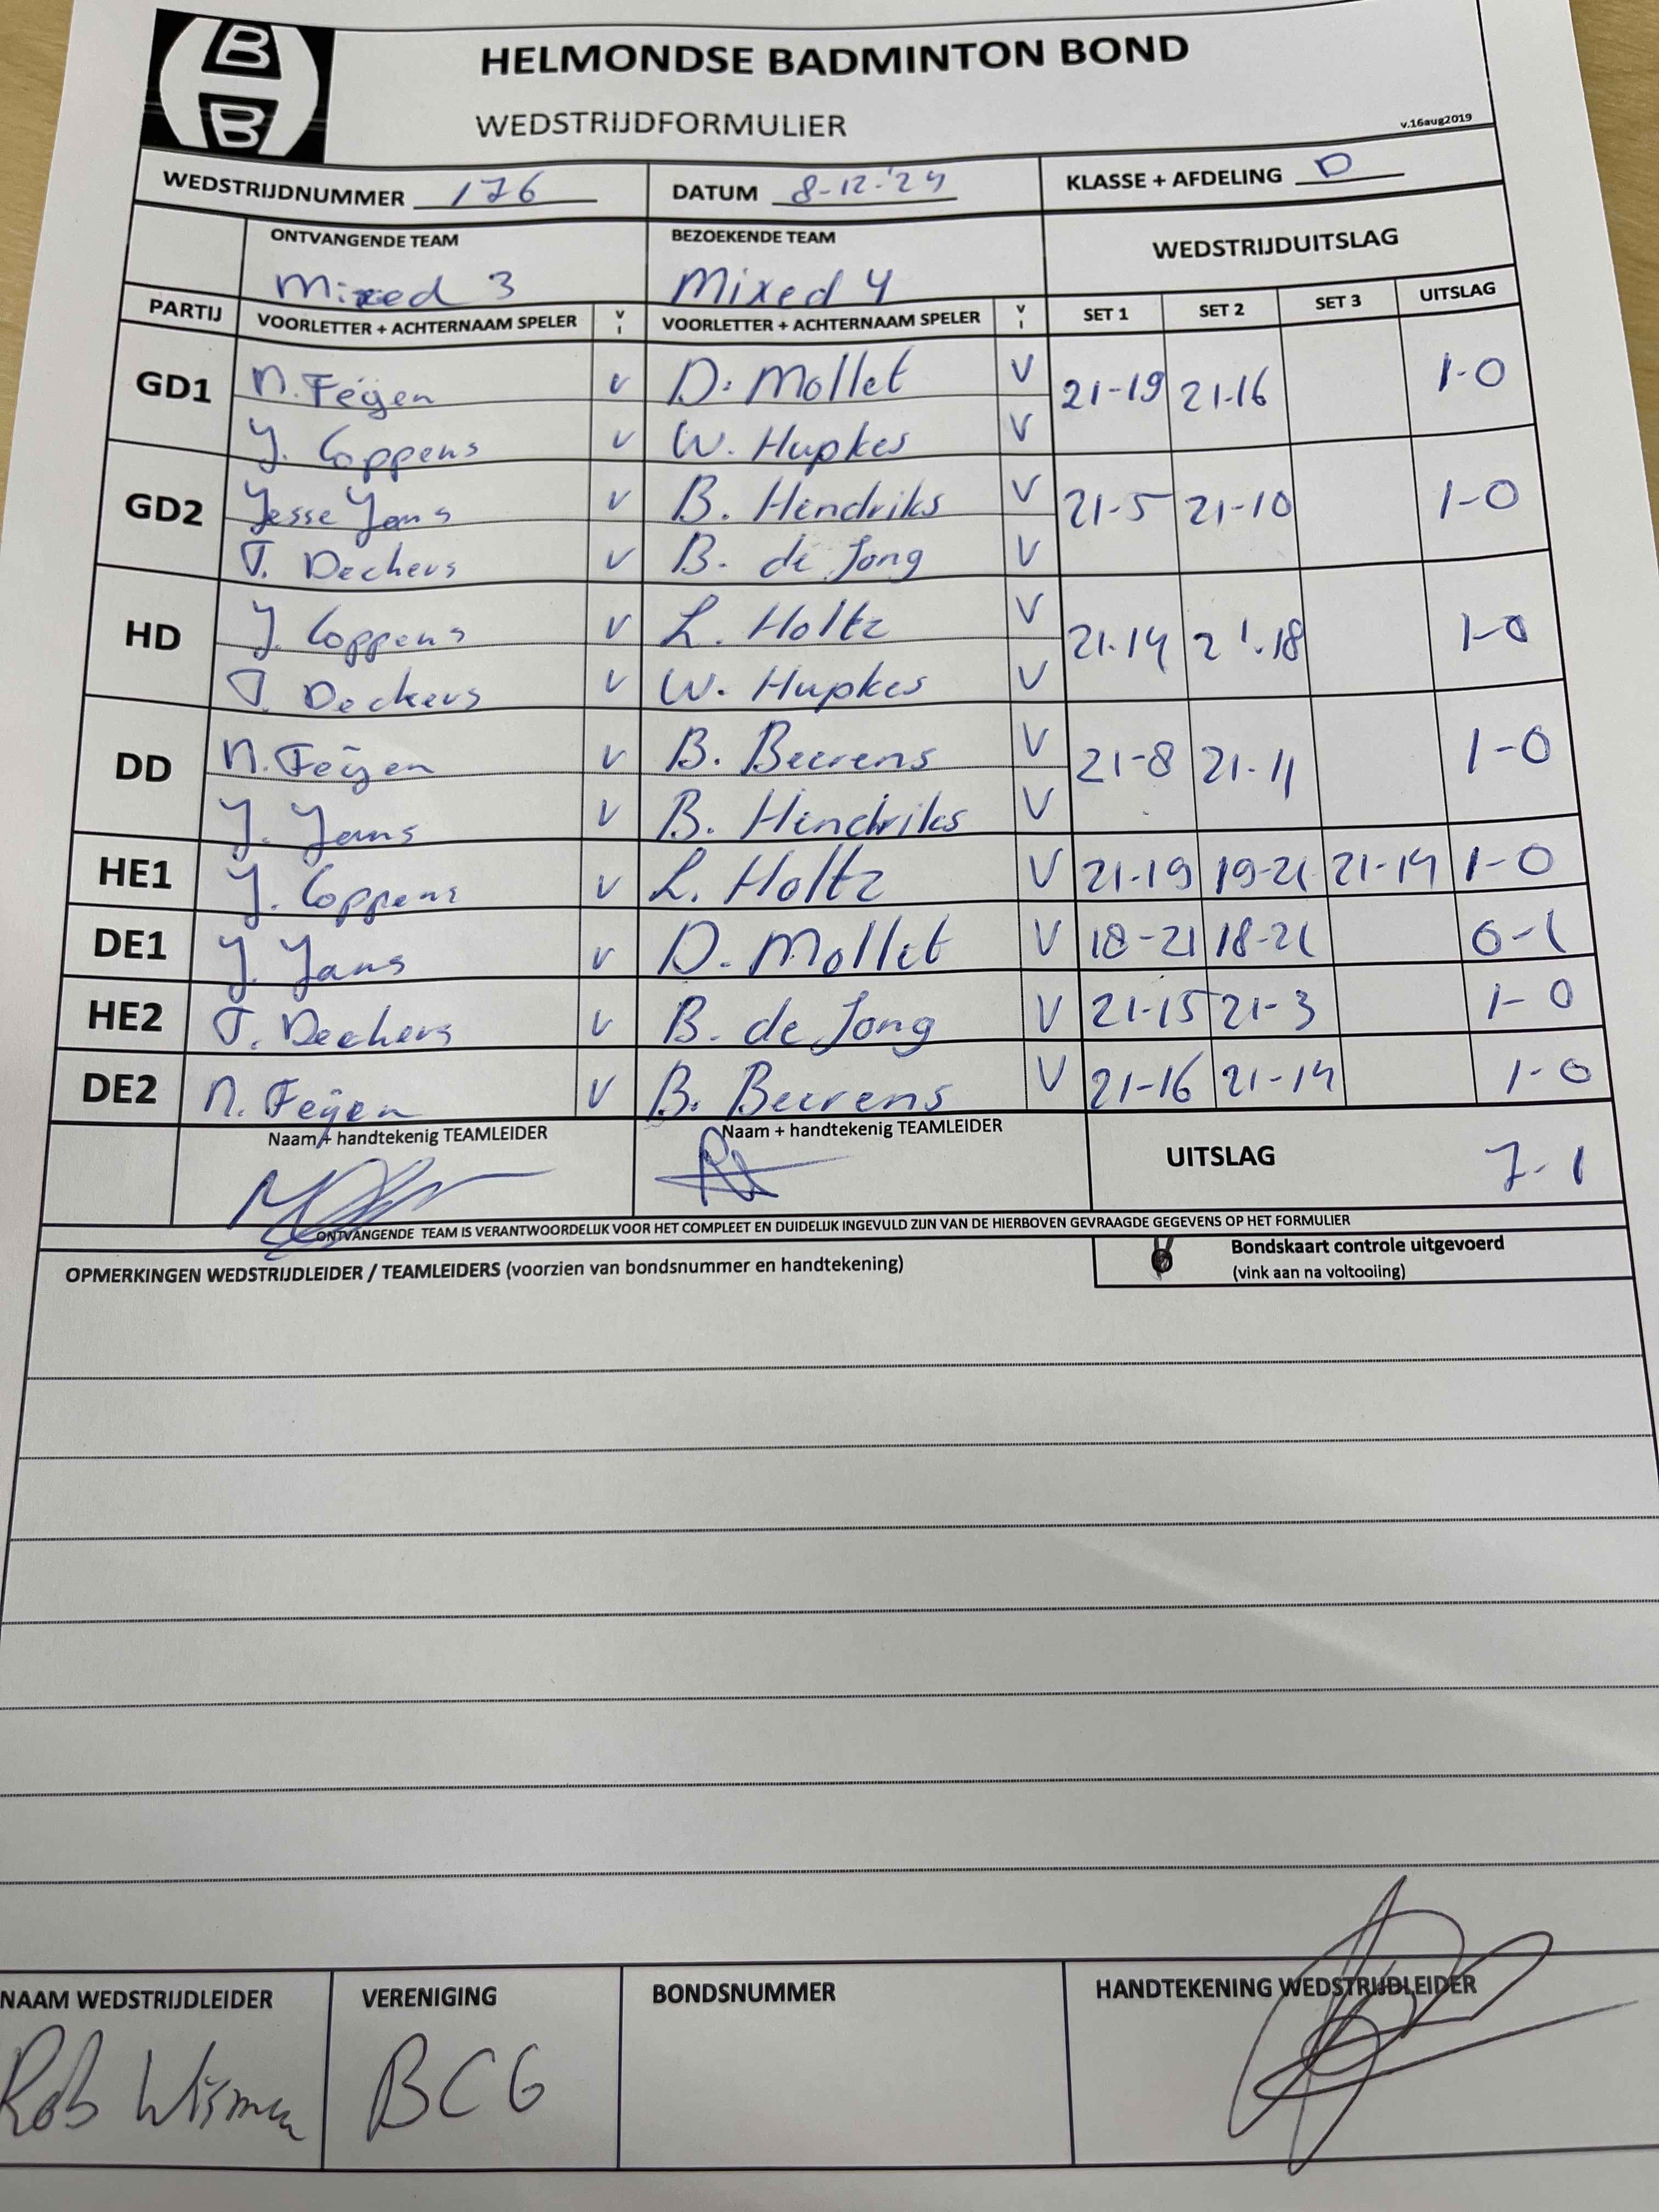 B
B
HELMONDSE BADMINTON BOND
WEDSTRIJDFORMULIER
v.16aug2019
WEDSTRIJDNUMMER 176 DATUM 8-12-'24 KLASSE + AFDELING D
ONTVANGENDE TEAM BEZOEKENDE TEAM WEDSTRIJDUITSLAG
Mixed 3 Mixed 4
PARTIJ VOORLETTER + ACHTERNAAM SPELER V I VOORLETTER + ACHTERNAAM SPELER V I SET 1 SET 2 SET 3 UITSLAG
GD1 N. Feijen V D. Mollet V 21-19 21-16 1-0
J. Coppens V W. Hupkes V
GD2 Jesse Jans V B. Hendriks V 21-5 21-10 1-0
T. Deckers V B. de Jong V
HD J. Coppens V L. Holtz V 21-14 21-18 1-0
T. Deckers V W. Hupkes V
DD N. Feijen V B. Beerens V 21-8 21-11 1-0
J. Jans V B. Hendriks V
HE1 J. Coppens V L. Holtz V 21-19 19-21 21-14 1-0
DE1 J. Jans V D. Mollet V 18-21 18-21 0-1
HE2 T. Deckers V B. de Jong V 21-15 21-3 1-0
DE2 N. Feijen V B. Beerens V 21-16 21-14 1-0
Naam + handtekenig TEAMLEIDER Naam + handtekenig TEAMLEIDER UITSLAG 7-1
ONTVANGENDE TEAM IS VERANTWOORDELIJK VOOR HET COMPLEET EN DUIDELIJK INGEVULD ZIJN VAN DE HIERBOVEN GEVRAAGDE GEGEVENS OP HET FORMULIER
OPMERKINGEN WEDSTRIJDLEIDER / TEAMLEIDERS (voorzien van bondsnummer en handtekening)
Bondskaart controle uitgevoerd
(vink aan na voltooiing)
NAAM WEDSTRIJDLEIDER VERENIGING BONDSNUMMER HANDTEKENING WEDSTRIJDLEIDER
Rob Wisman BCG